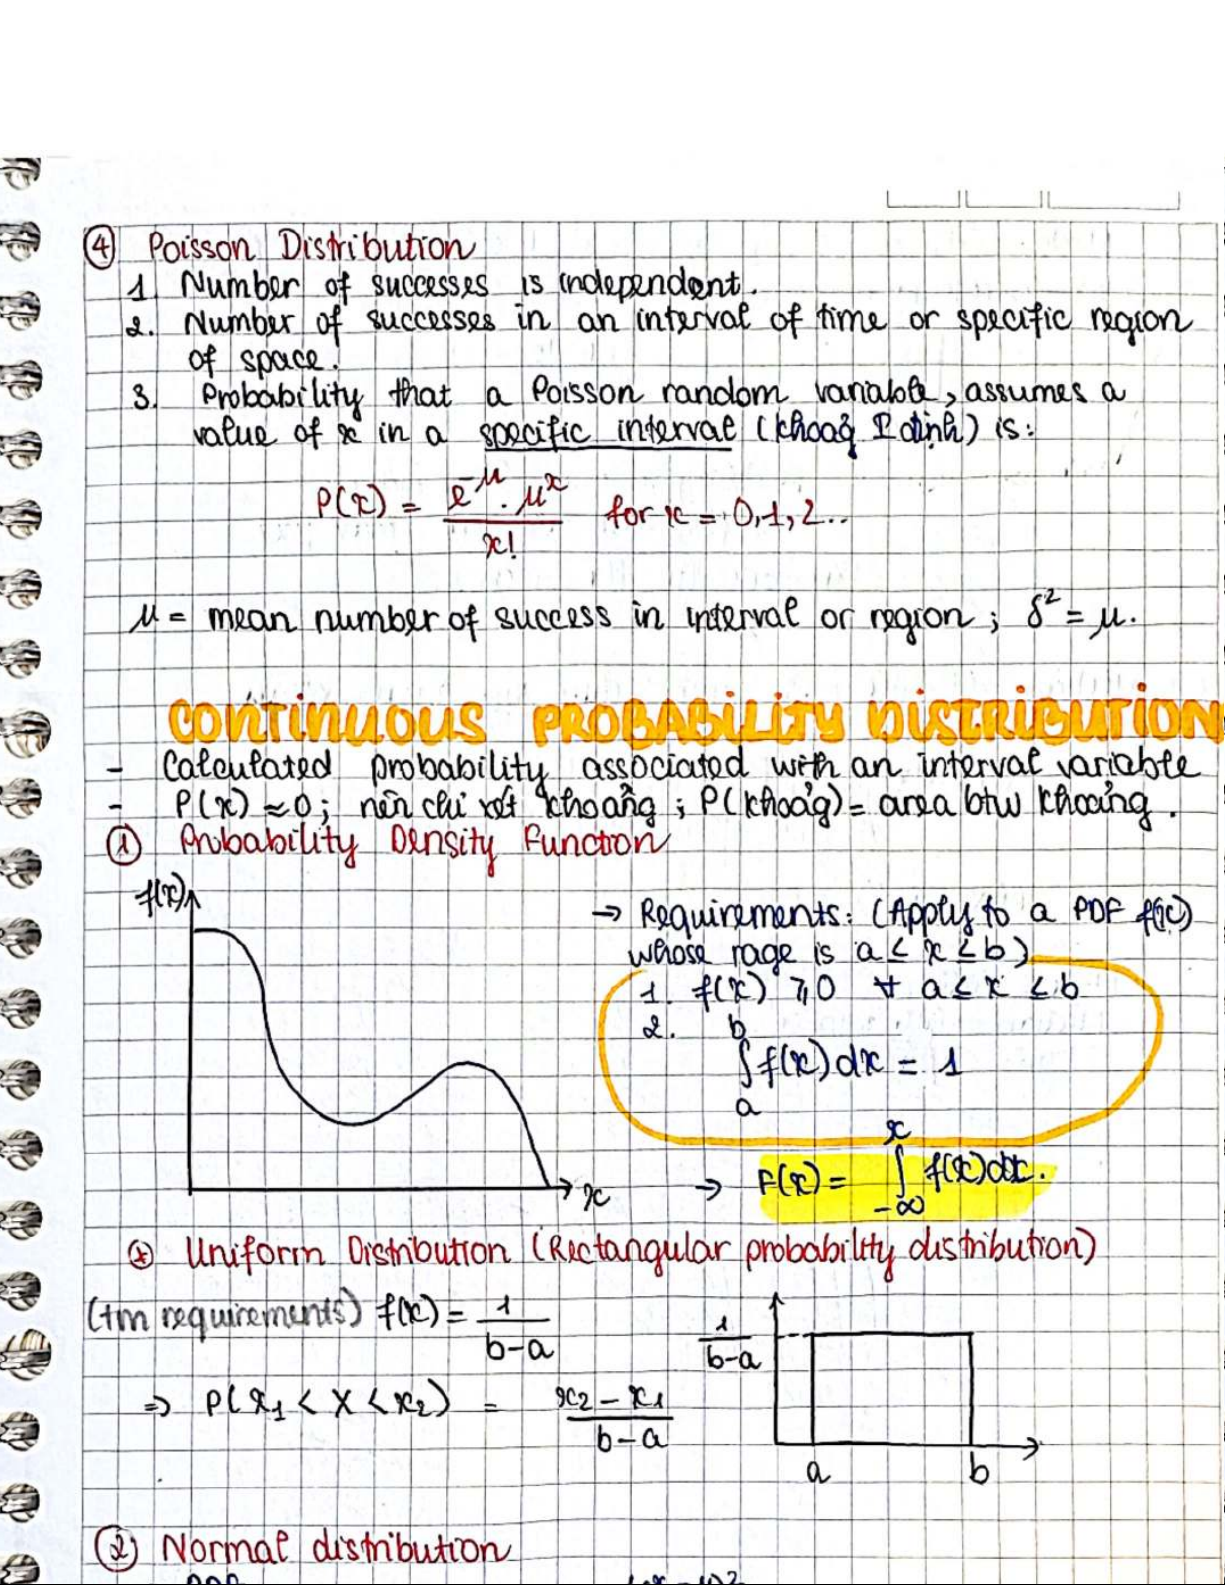 ④ Poisson Distribution
1. Number of successes is independent.
2. Number of successes in an interval of time or specific region
of space.
3. Probability that a Poisson random variable, assumes a
value of x in a specific interval (khoảg I định) is:
P(x) = e^-μ . μ^x / x! for x = 0,1,2..
μ = mean number of success in interval or region ; δ² = μ.
CONTINUOUS PROBABILITY DISTRIBUTION
- Calculated probability associated with an interval variable
- P(x) ≈ 0; nên chỉ xét khoảng ; P(khoảg) = area btw khoảng.
① Probability Density Function
f(x)
→ Requirements: (Apply to a PDF f(x)
whose rage is a ≤ x ≤ b)
1. f(x) ≥ 0 ∀ a ≤ x ≤ b
2. ∫_a^b f(x)dx = 1
x
→ F(x) = ∫_-∞^x f(x)dx.
⊛ Uniform Distribution (Rectangular probability distribution)
(tm requirements) f(x) = 1 / b-a
1 / b-a
⇒ P(x₁ < X < x₂) = x₂ - x₁ / b-a
a b
② Normal distribution